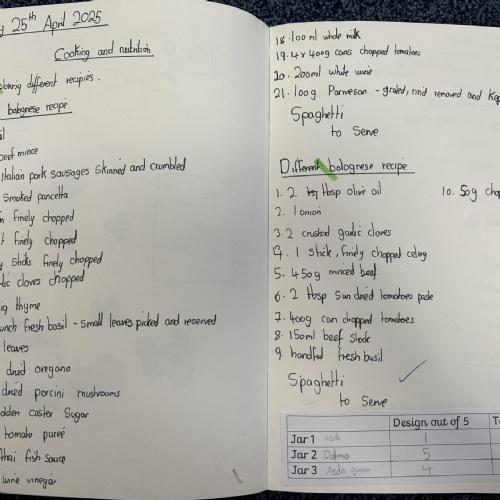 25th April 2025
Cooking and nutrition
different recipies.
bolognese recipe
beef mince
Italian pork sausages skinned and crumbled
smoked pancetta
finely chopped
finely chopped
sticks finely chopped
cloves chopped
thyme
fresh basil - small leaves picked and reserved
leaves
dried oregano
dried porcini mushrooms
caster sugar
tomato pureé
thai fish sauce
wine vinegar
18. 100ml whole milk
19. 4 x 400g cans chopped tomatoes
20. 200ml white wine
21. 100g Parmesan - grated, rind removed and
Spaghetti
to serve
Different bolognese recipe
1. 2 tbsp olive oil
2. 1 onion
3. 2 crushed garlic cloves
4. 1 stick, finely chopped celery
5. 450g minced beef
6. 2 tbsp sun dried tomatoes paste
7. 400g can chopped tomatoes
8. 150ml beef stock
9. handful fresh basil
10. 50g
Spaghetti
to serve
Design out of 5
Jar 1 Asda 1
Jar 2 Dolmio 5
Jar 3 Asda green 4